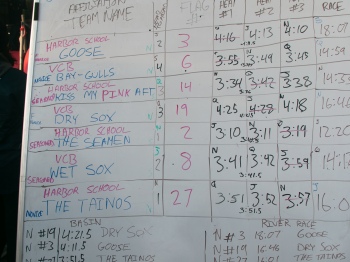 TEAM NAME FLAG HEAT #1 HEAT #2 HEAT #3 RACE
HARBOR SCHOOL
GOOSE 2 3 4:16 4:13 4:10 18:07
VCB
BAY-GULLS 4 6 3:55 3:49 3:43 14:59
HARBOR SCHOOL
KISS MY PINK AFT 2 14 3:34 3:42 3:38
VCB
DRY SOX 3 19 4:25 4:28 4:18 16:46
HARBOR SCHOOL
THE SEAMEN 1 2 3:10 3:11 3:19 12:20
VCB
WET SOX 2 8 3:41 3:42 3:59
HARBOR SCHOOL
THE TAINOS 1 27 3:51 3:52 3:57
BASIN RIVER RACE
N #19 4:21.5 DRY SOX N #3 18:07 GOOSE
N #3 4:11.5 GOOSE N #19 16:46 DRY SOX
THE TAINOS